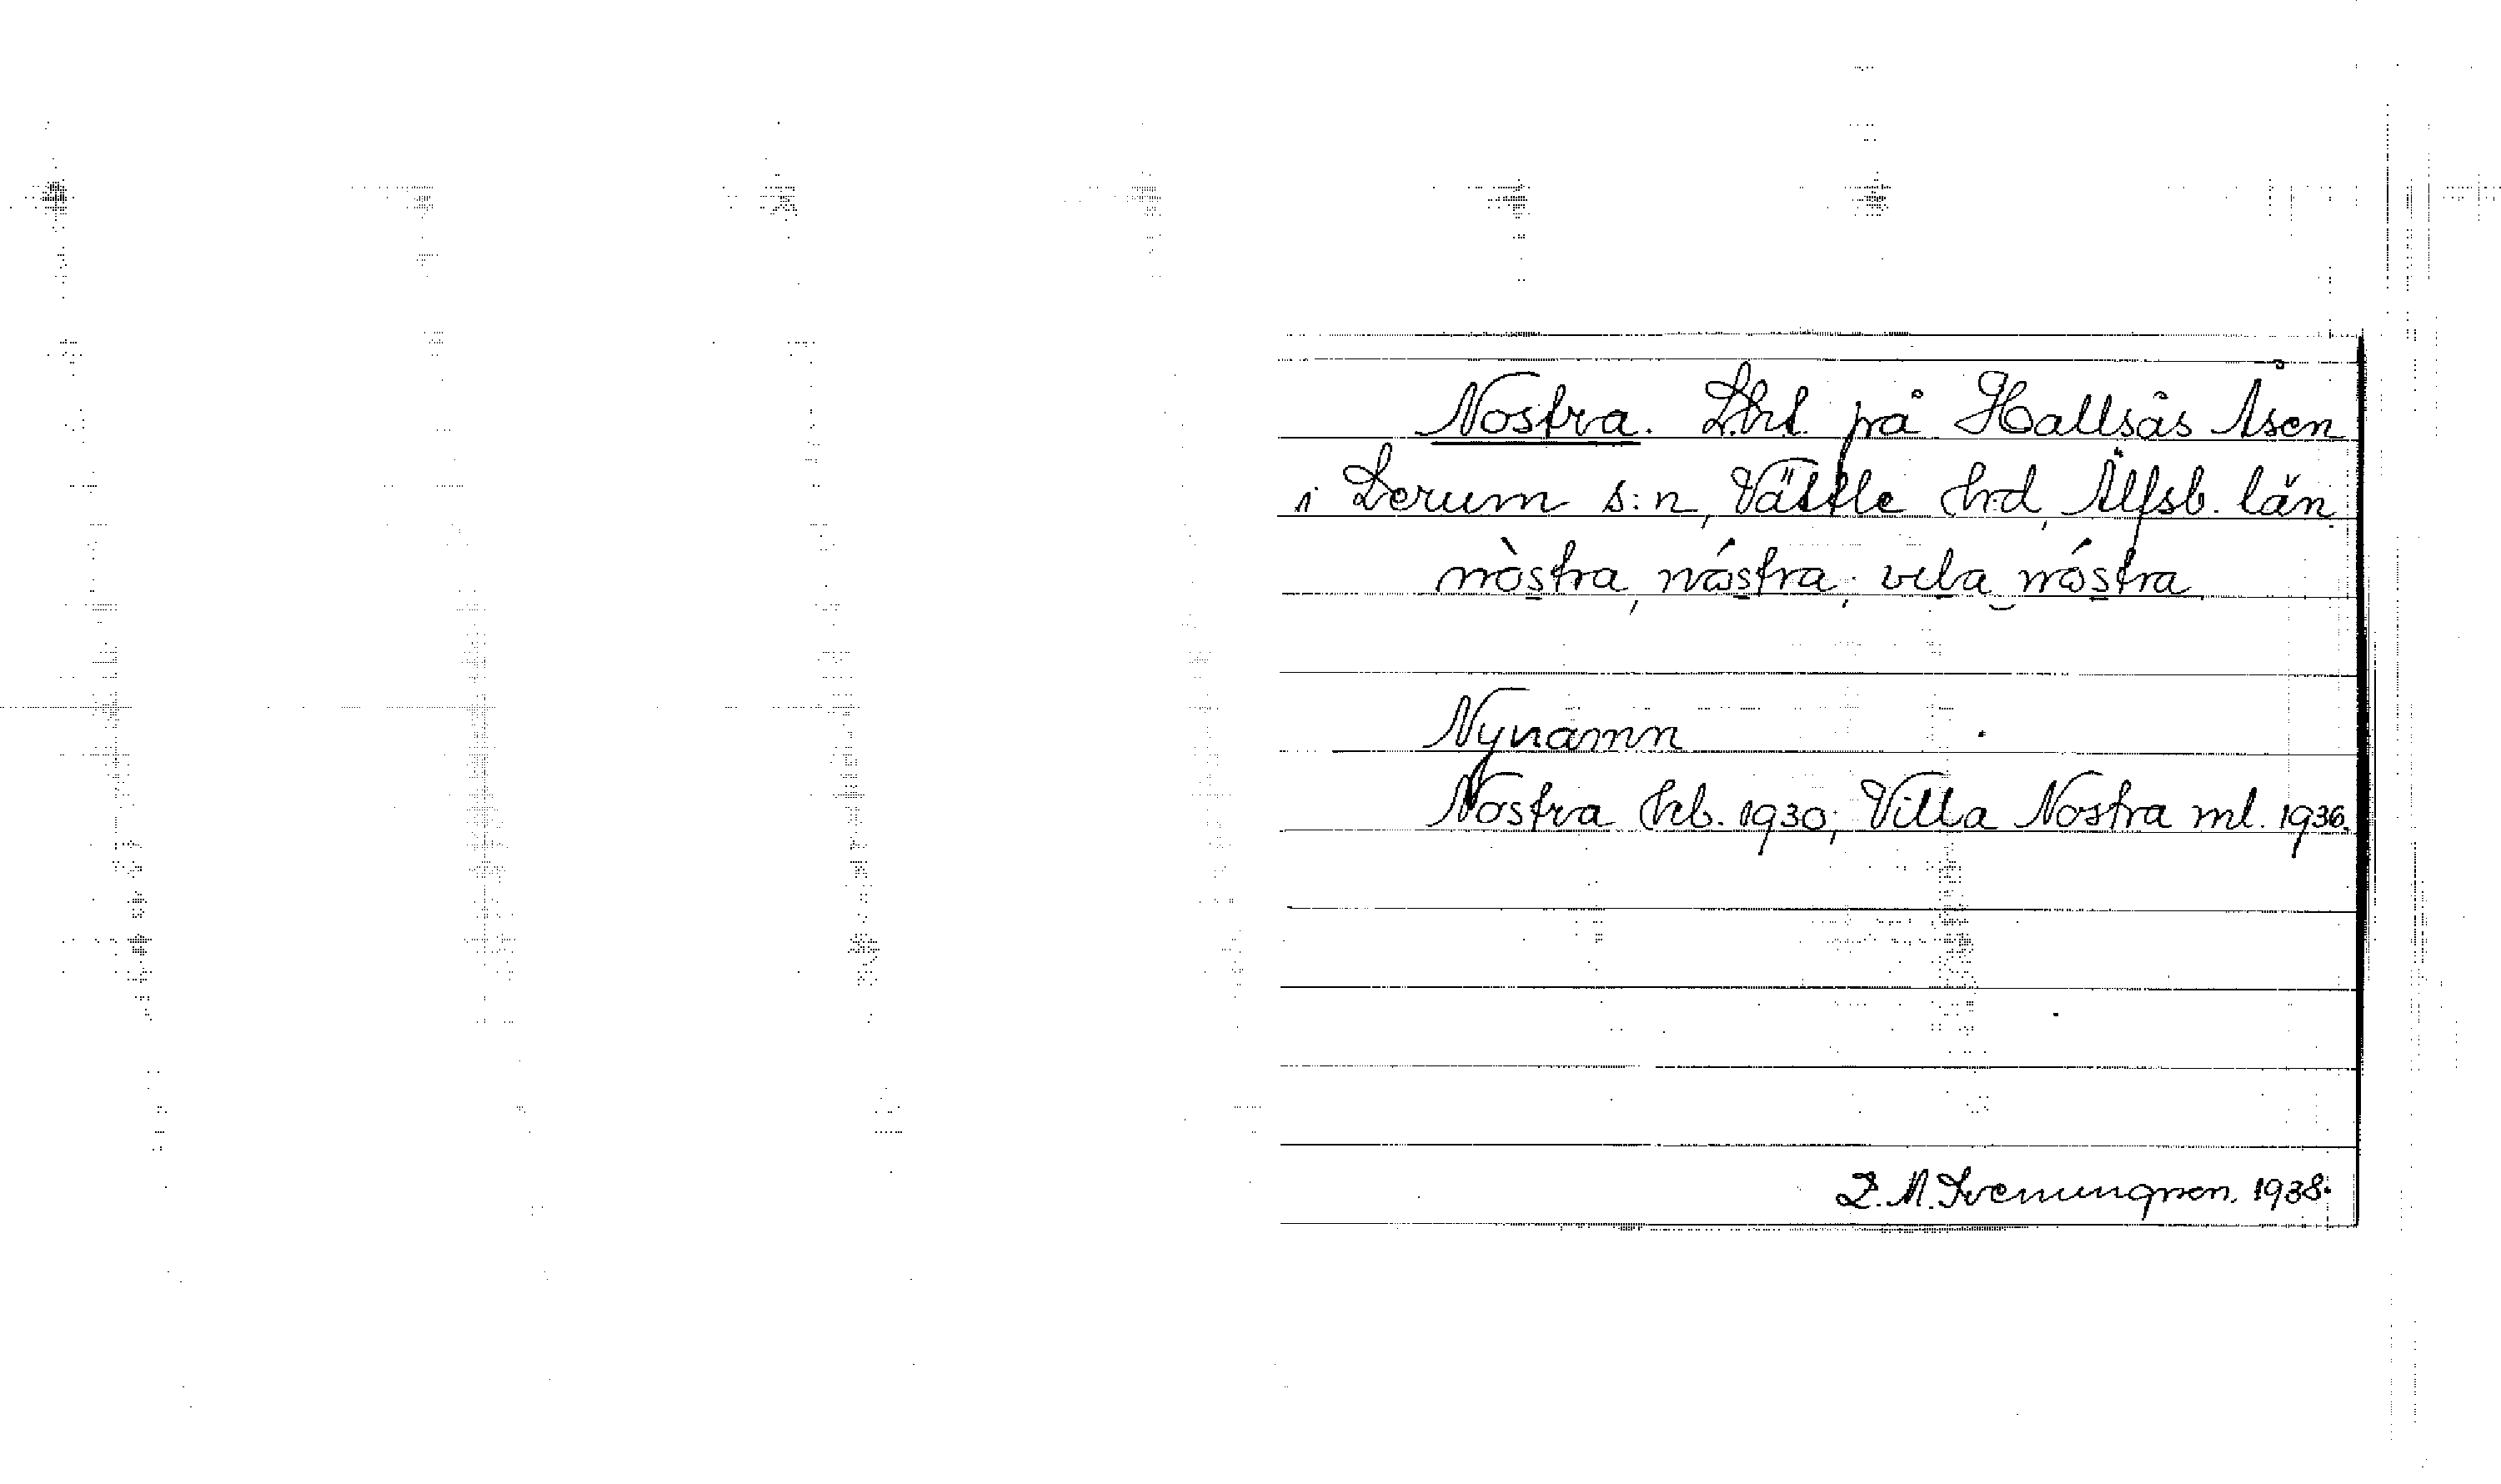 Nostra. Lht. på Hallsås Åsen
i Lerum s:n, Vättle hd, Älfsb. län.
nòstra, nóstra; vila nóstra.
Nynamn
Nostra hb. 1930; Villa Nostra ml. 1936.
1938.